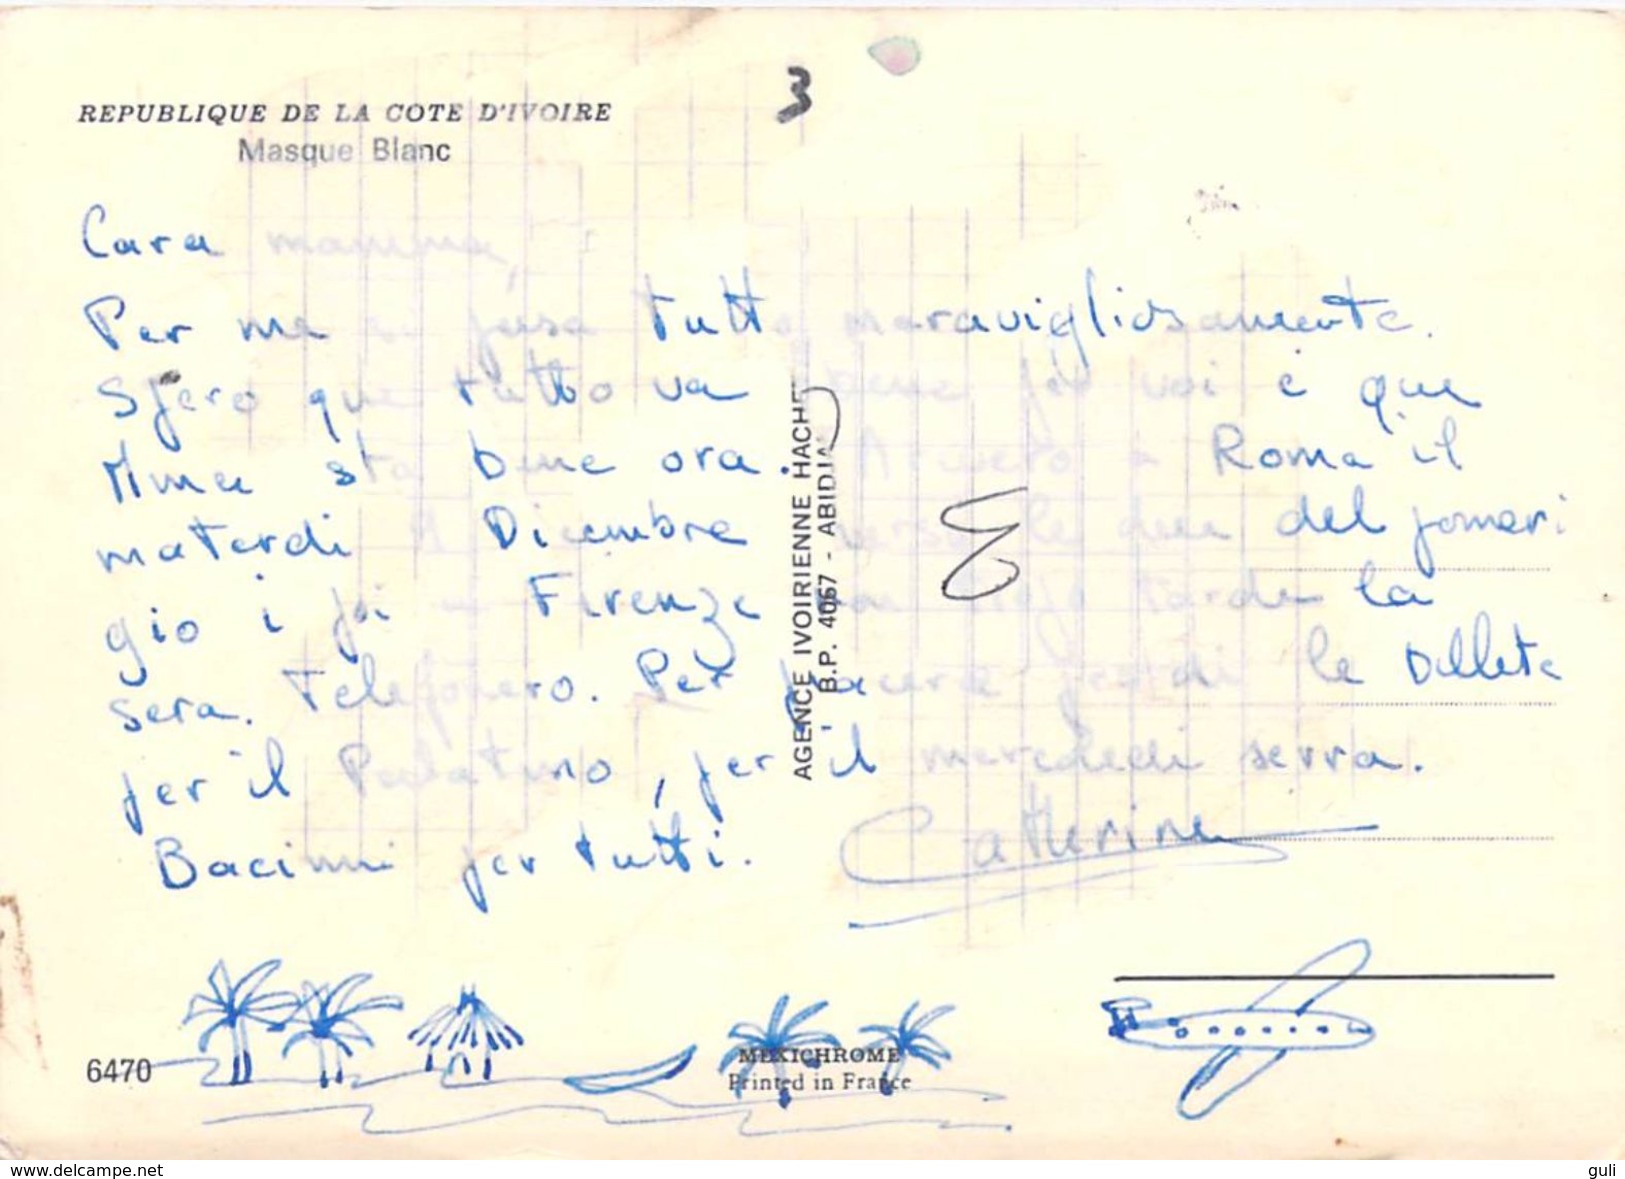 REPUBLIQUE DE LA COTE D'IVOIRE
Masque Blanc
3
Cara mamma,
Per me si pasa tutto maravigliosamente.
Spero que tutto va bene per voi e que
Mma sta bene ora. Arivero a Roma il
materdi 9 Dicembre verso le due del pomeri
gio i poi a Firenze non tropo tardi la
sera. Telefonero. Per piacere prendi le billete
per il Palatino, per il mercledi serra.
Bacinni per tutti. Catherine
AGENCE IVOIRIENNE HACHET
B.P. 4067 - ABIDJA
6470
MEXICHROME
Printed in France
www.delcampe.net
guli